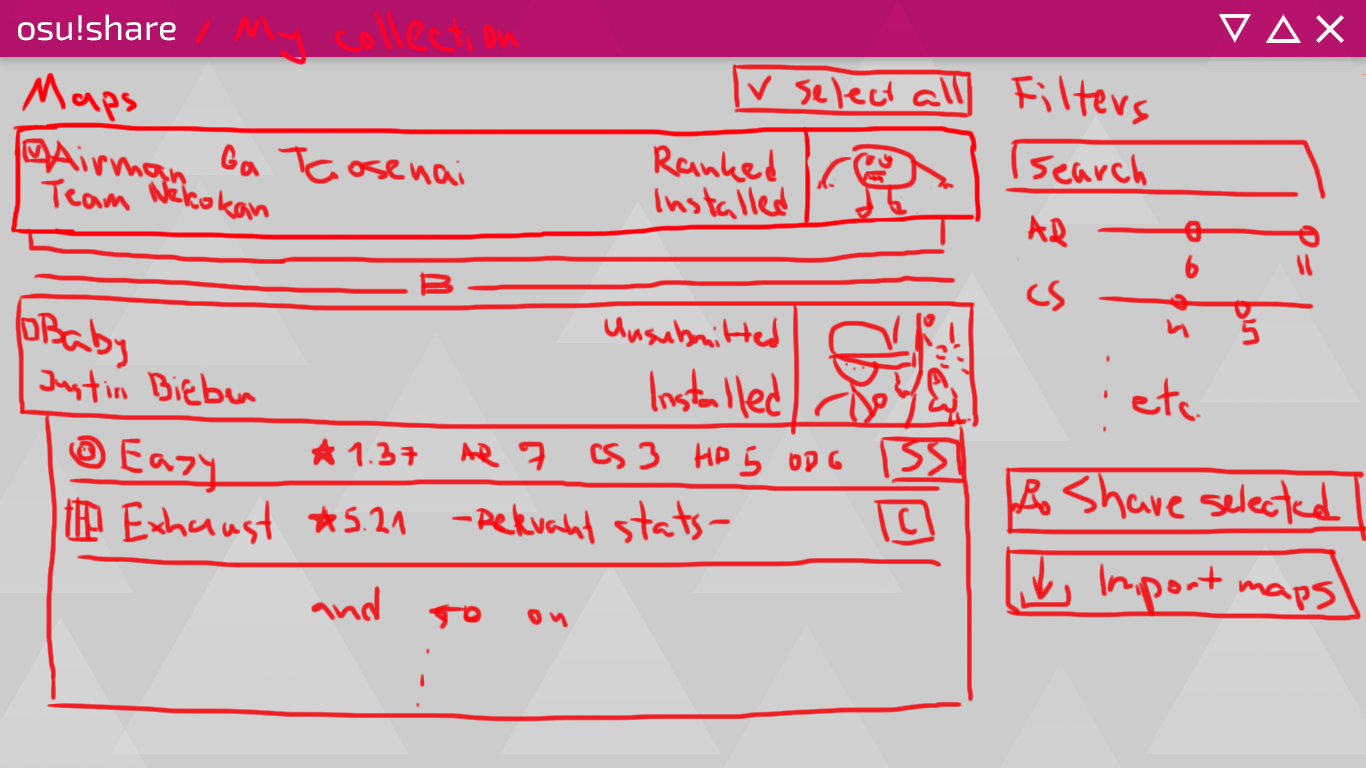 osu!share / My collection
Maps
✓ Select all
Airman Ga Tcosenai
Ranked
Team Nekokan
Installed
B
Baby
Unsubmitted
Justin Bieber
Installed
Easy ★ 1.37 AR 7 CS 3 HP 5 OD 6 SS
Exhaust ★ 5.21 -Relevant stats- C
and so on
Filters
Search
AR
6 11
CS
4 5
etc.
Share selected
Import maps